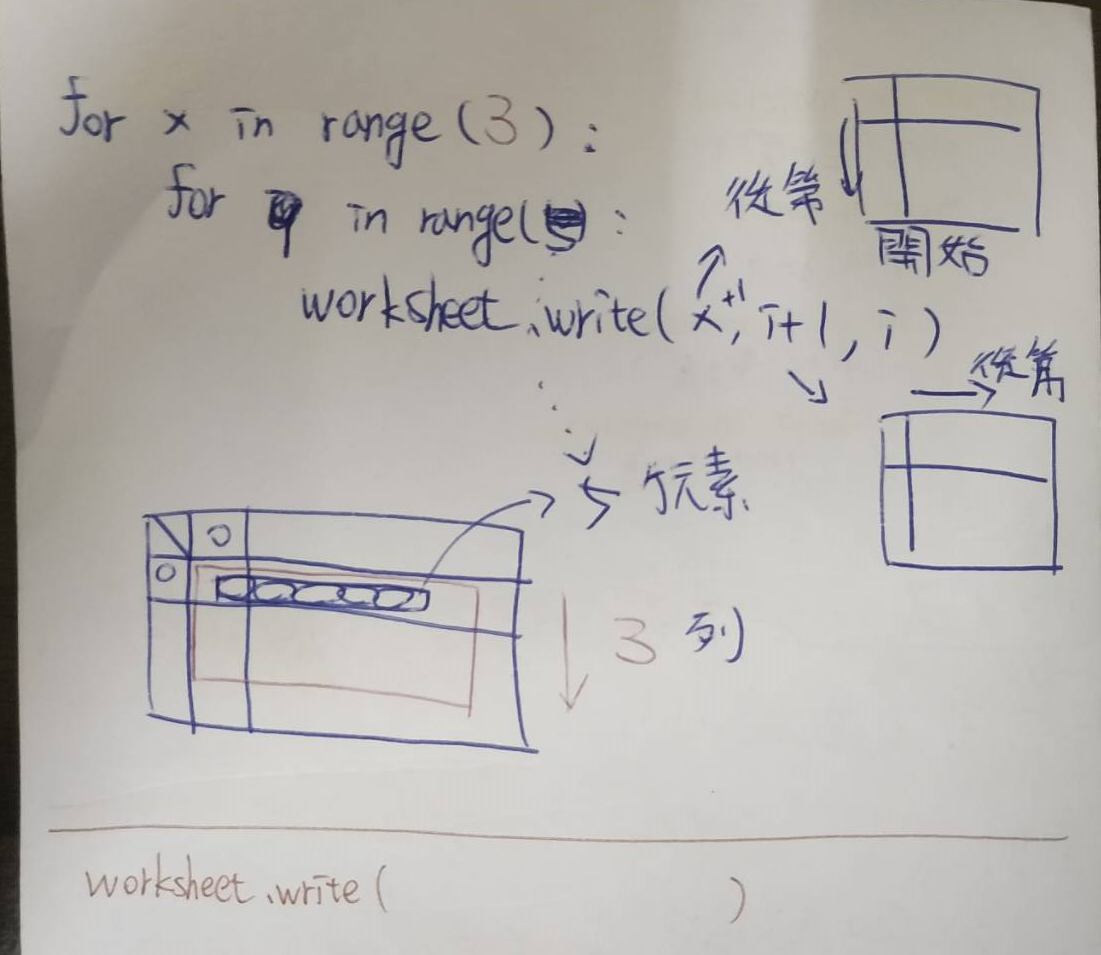 for x in range(3):
for in range(5):
從第
開始
worksheet.write(x+1, i+1, i)
從第
5 个元素
0
0
3 列
worksheet.write( )